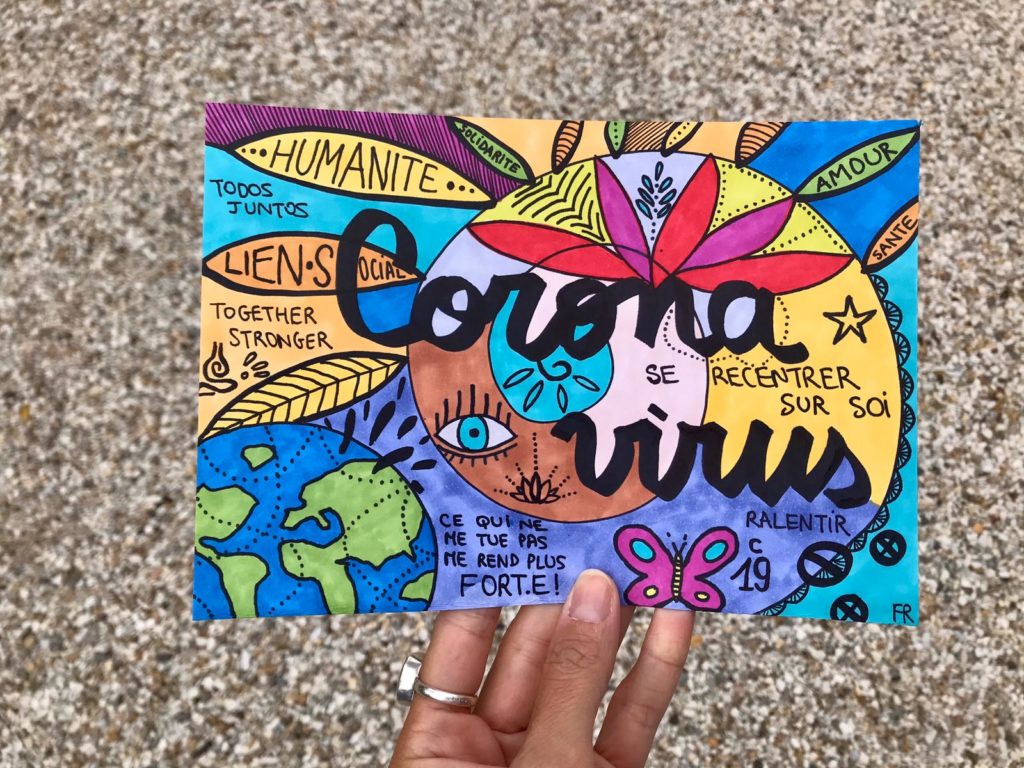 HUMANITE
SOLIDARITÉ
AMOUR
SANTE
TODOS
JUNTOS
LIEN·SOCIAL
Corona
TOGETHER
STRONGER
SE RECENTRER
SUR SOI
virus
CE QUI NE
ME TUE PAS
ME REND PLUS
FORT.E!
RALENTIR
C
19
FR